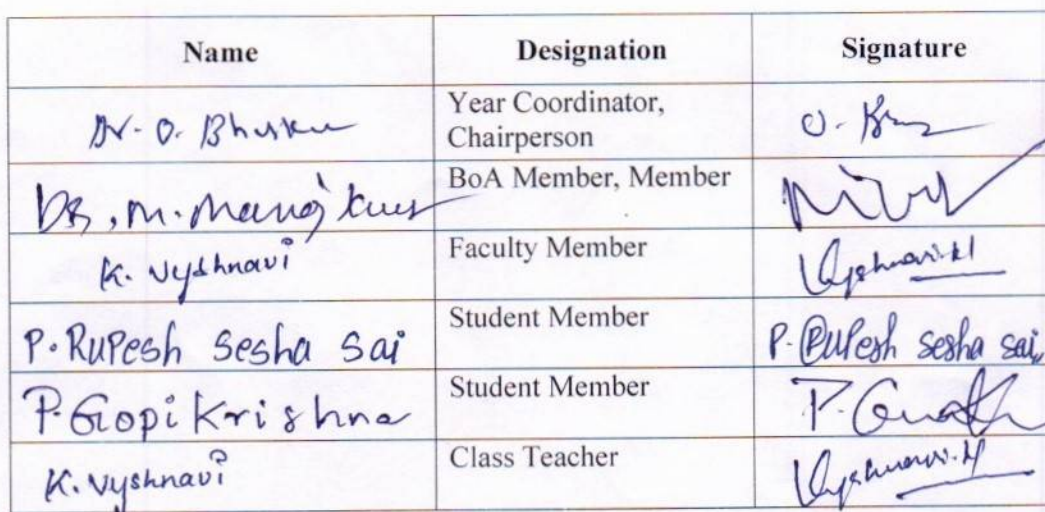 Name Designation Signature
Dr. O. Bhaskar Year Coordinator,
Chairperson O.
Dr. M. Manoj Kumar BoA Member, Member
K. Vyshnavi Faculty Member Vyshnavi.K
P. Rupesh Sesha Sai Student Member P. Rupesh Sesha Sai
P. Gopi Krishna Student Member P.
K. Vyshnavi Class Teacher Vyshnavi.K